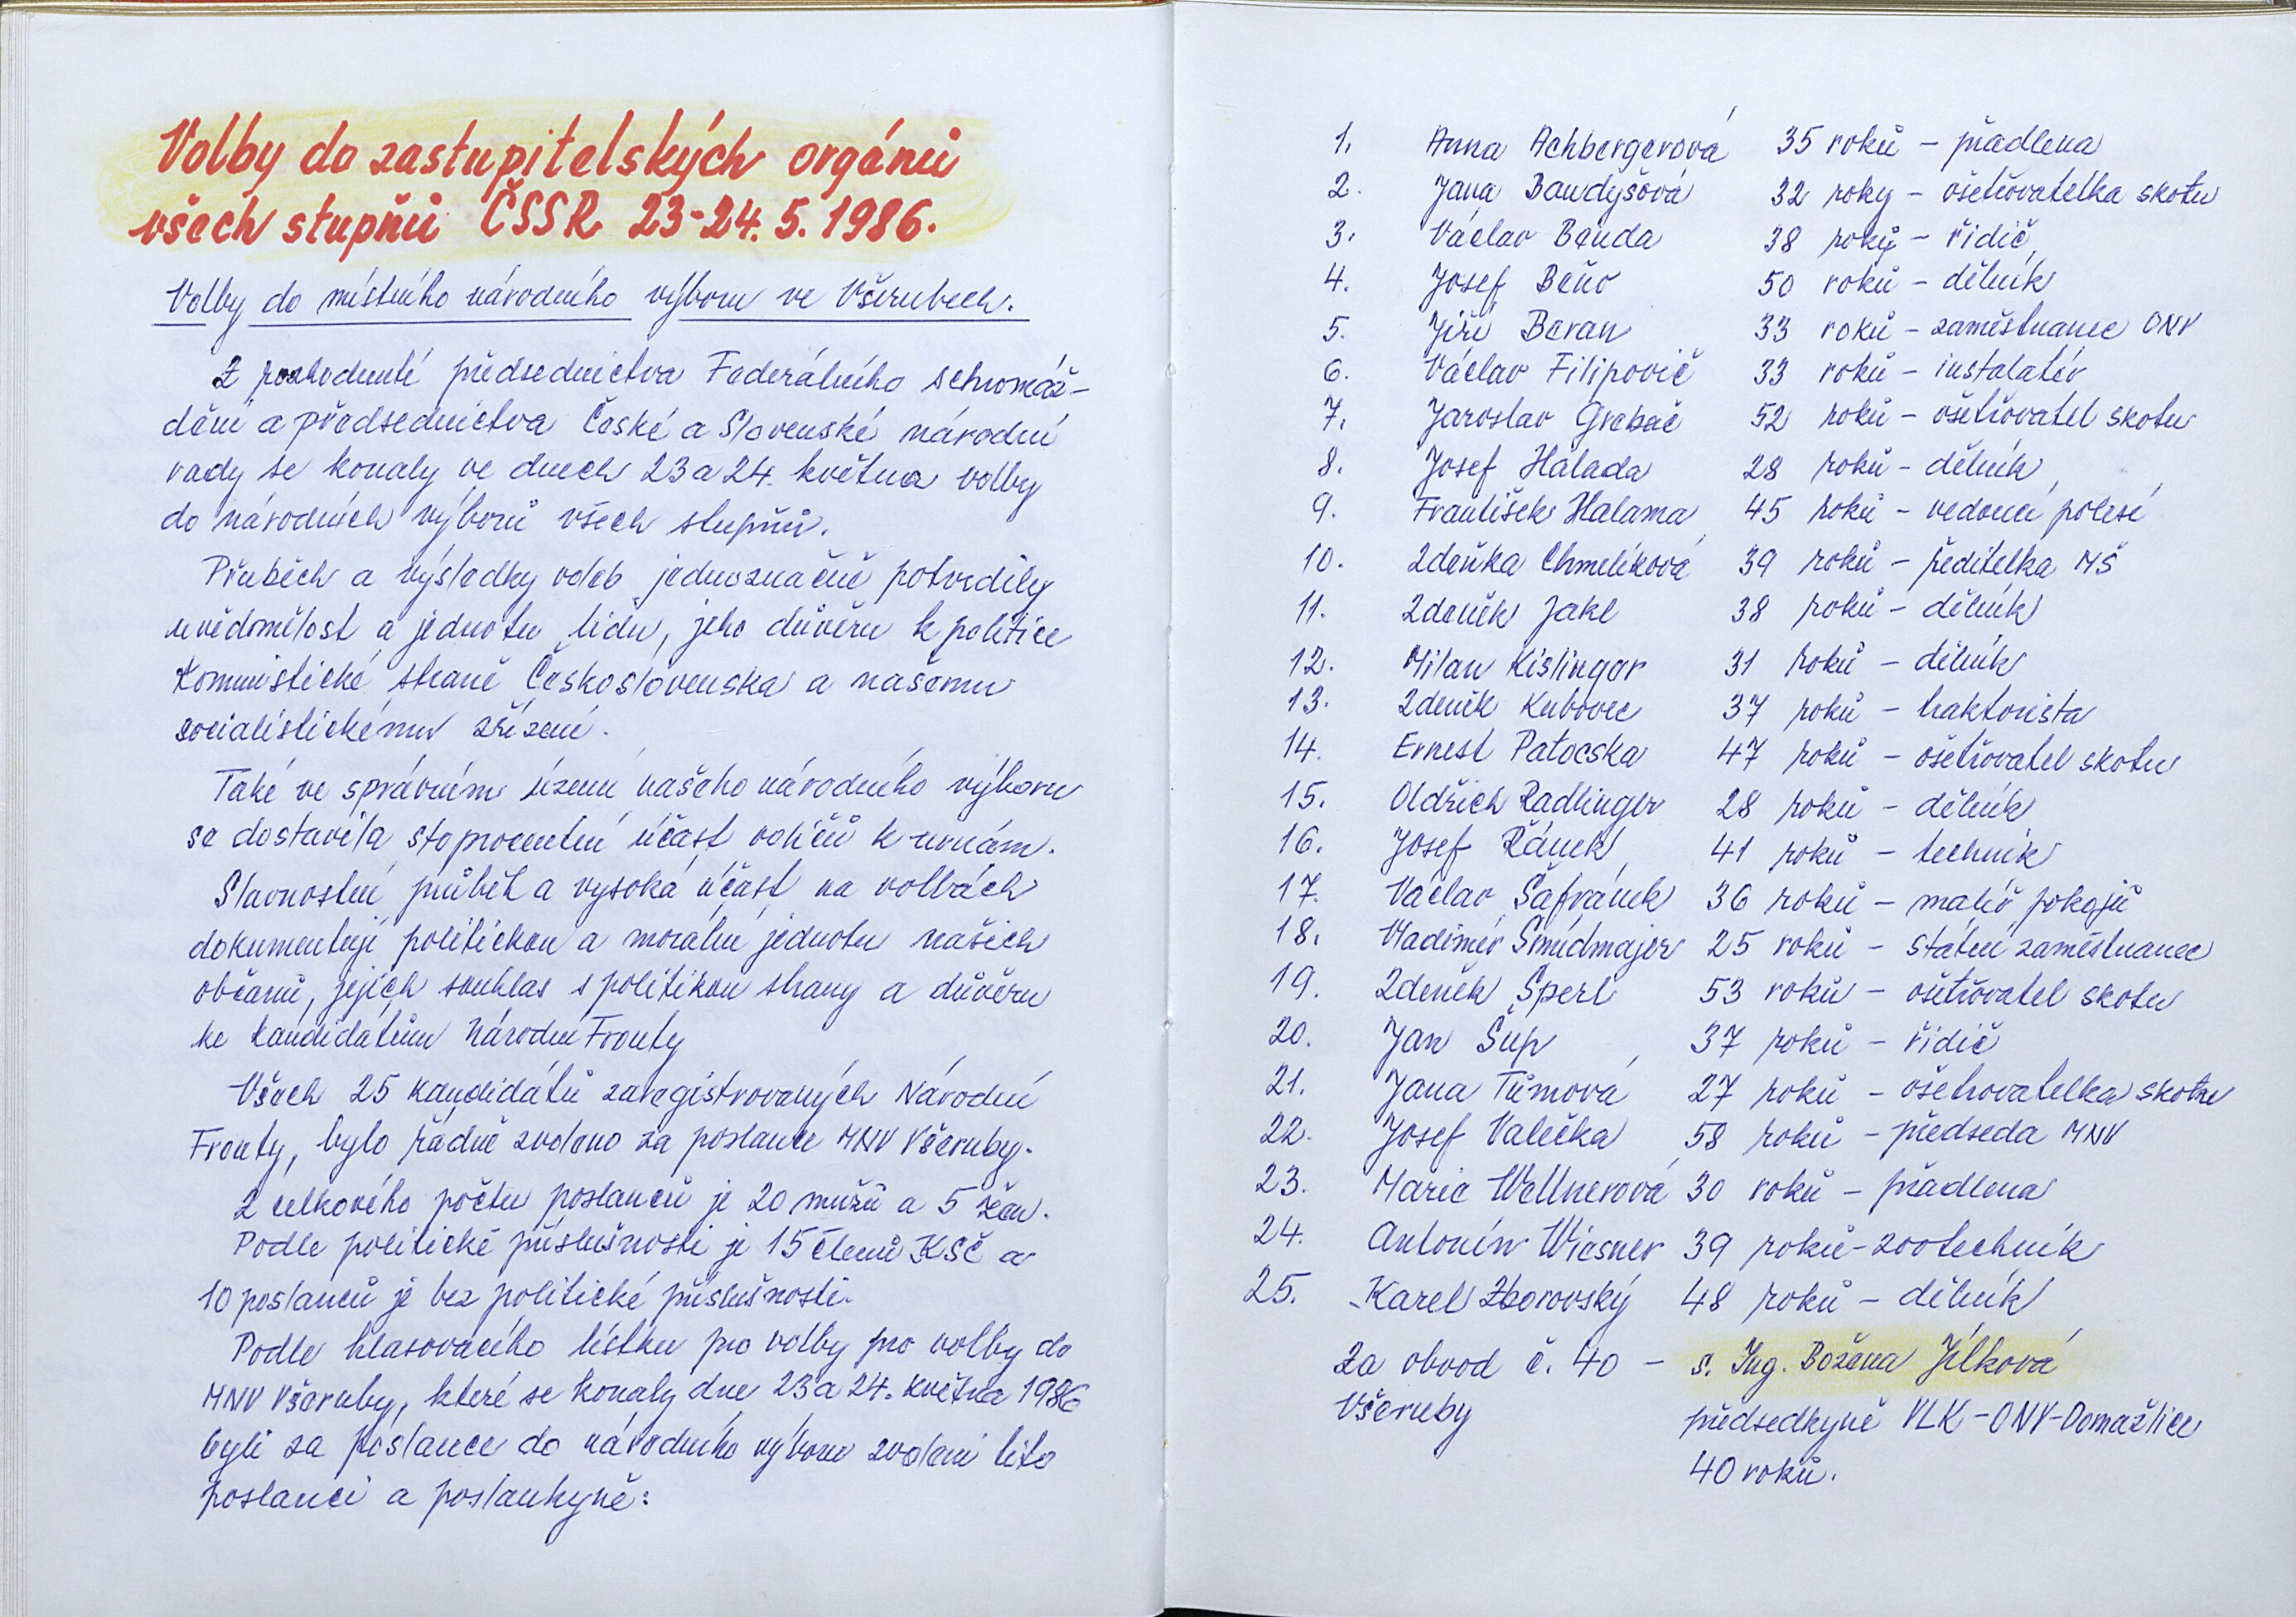 Volby do zastupitelských orgánů
všech stupňů ČSSR 23-24.5.1986.
Volby do místního národního výboru ve Všerubech.
Z rozhodnutí předsednictva Federálního schromáž-
dění a předsednictva České a Slovenské národní
rady se konaly ve dnech 23 a 24. května volby
do národních výborů všech stupňů.
Průběh a výsledky voleb jednoznačně potvrdily
uvědomělost a jednotu lidu, jeho důvěru k politice
Komunistické straně Československa a našemu
socialistickému zřízení.
Také ve správním územi našeho národního výboru
se dostavila stoprocentní účast voličů k urnám.
Slavnostní průběh a vysoká účast na volbách
dokumentují politickou a morální jednotu našich
občanů, jejich souhlas s politikou strany a důvěru
ke kandidátům Národní Fronty
Všech 25 kandidátů zaregistrovaných Národní
Fronty, bylo řádně zvoleno za poslance MNV Všeruby.
Z celkového počtu poslanců je 20 mužů a 5 žen.
Podle politické příslušnosti je 15 členů KSČ a
10 poslanců je bez politické příslušnosti.
Podle hlasovacího lístku pro volby pro volby do
MNV Všeruby, které se konaly dne 23 a 24. května 1986
byli za poslance do národního výboru zvoleni tito
poslanci a poslankyně:
1. Anna Achbergerová 35 roků – přadlena
2. Jana Baudyšová 32 roky – ošetřovatelka skotu
3. Václav Benda 38 roků – řidič
4. Josef Beňo 50 roků – dělník
5. Jiří Beran 33 roků – zaměstnanec ONV
6. Václav Filipovič 33 roků – instalatér
7. Jaroslav Grebač 52 roků – ošetřovatel skotu
8. Josef Halada 28 roků – dělník
9. František Halama 45 roků – vedoucí polesí
10. Zdeňka Chmelíková 39 roků – ředitelka MŠ
11. Zdeněk Jakl 38 roků – dělník
12. Milan Kislinger 31 roků – dělník
13. Zdeněk Kubovec 37 roků – traktorista
14. Ernest Patocska 47 roků – ošetřovatel skotu
15. Oldřich Radlinger 28 roků – dělník
16. Josef Řánek 41 roků – technik
17. Václav Šafránek 36 roků – malíř pokojů
18. Vladimír Šmídmajer 25 roků – státní zaměstnanec
19. Zdeněk Šperl 53 roků – ošetřovatel skotu
20. Jan Šup 37 roků – řidič
21. Jana Tůmová 27 roků – ošetrovatelka skotu
22. Josef Valečka 58 roků – předseda MNV
23. Marie Wellnerová 30 roků – přadlena
24. Antonín Wiesner 39 roků – zootechnik
25. Karel Zborovský 48 roků – dělník
Za obvod č. 40 – s. Ing. Božena Jílková
Všeruby předsedkyně VLK – ONV – Domažlice
40 roků.